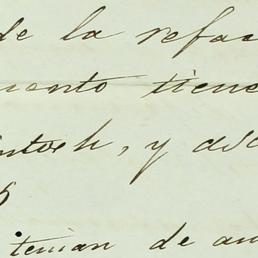 de la refac
uento tiene
intosh, y
tenian de